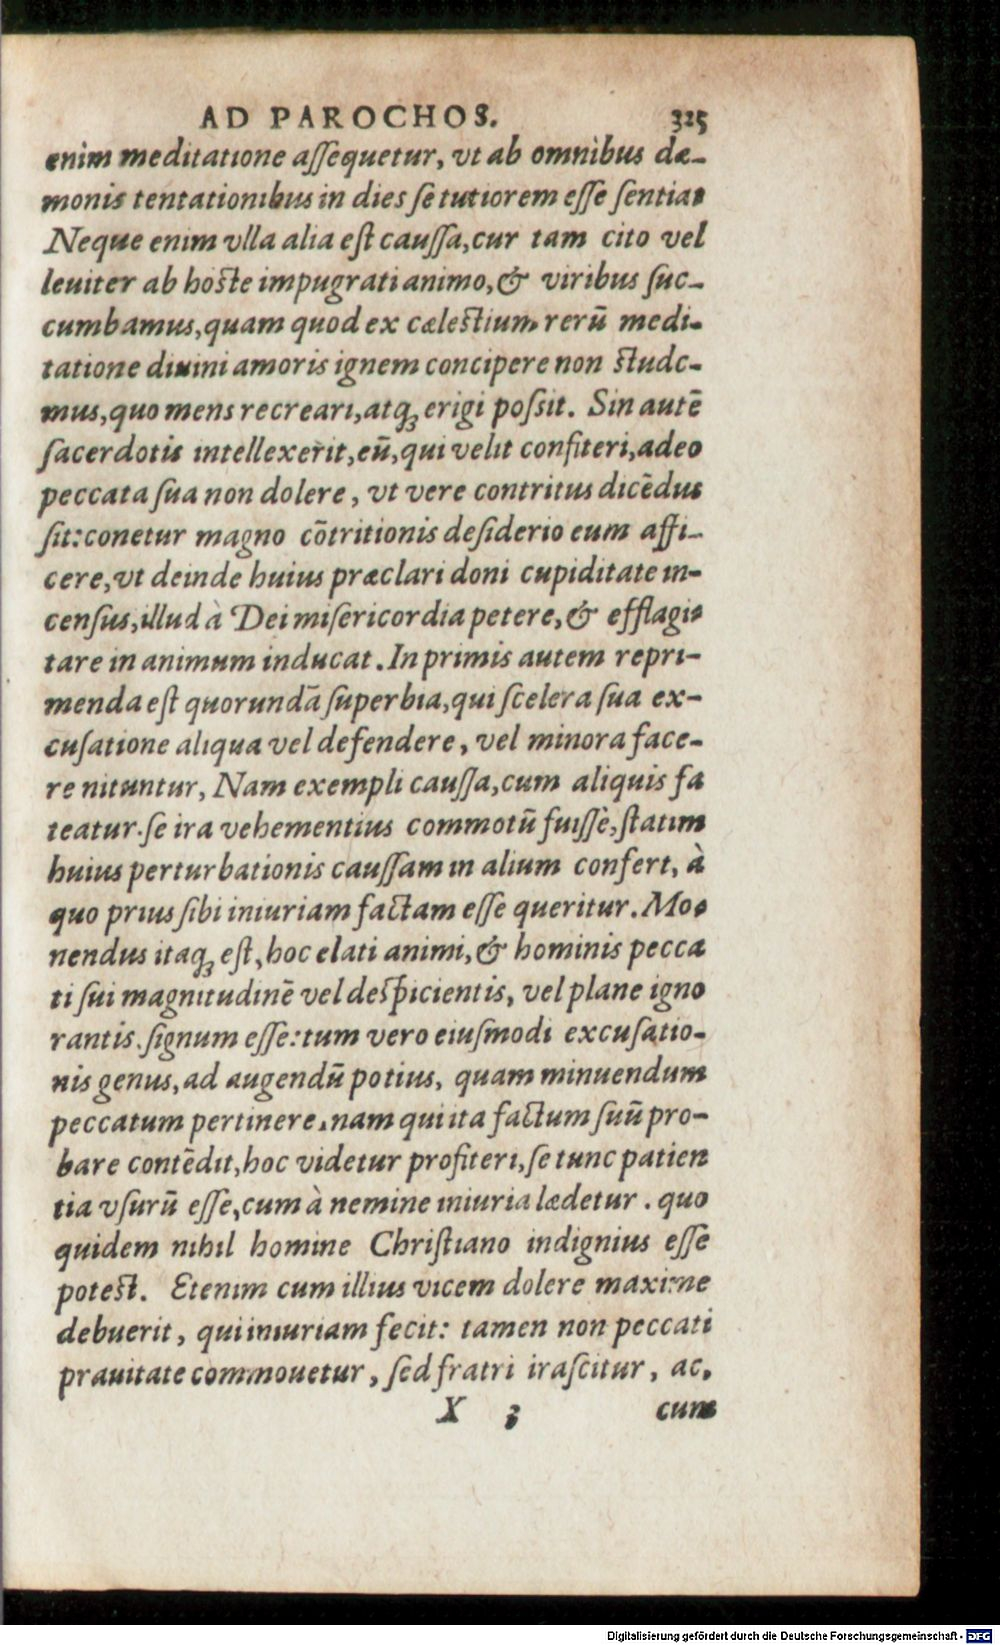 AD PAROCHOS. 325
enim meditatione aſſequetur, vt ab omnibus dæ-
monis tentationibus in dies ſe tutiorem eſſe ſentiat
Neque enim vlla alia eſt cauſſa, cur tam cito vel
leuiter ab hoſte impugrati animo, & viribus ſuc-
cumbamus, quam quod ex cæleſtium rerū medi-
tatione diuini amoris ignem concipere non ſtude-
mus, quo mens recreari, atq; erigi poſsit. Sin autē
ſacerdotis intellexerit, eū, qui velit confiteri, adeo
peccata ſua non dolere, vt vere contritus dicēdus
ſit: conetur magno cōtritionis deſiderio eum affi-
cere, vt deinde huius præclari doni cupiditate in-
cenſus, illud à Dei miſericordia petere, & efflagi-
tare in animum inducat. In primis autem repri-
menda eſt quorundā ſuperbia, qui ſcelera ſua ex-
cuſatione aliqua vel defendere, vel minora face-
re nituntur, Nam exempli cauſſa, cum aliquis fa
teatur. ſe ira vehementius commotū fuiſſè, ſtatim
huius perturbationis cauſſam in alium confert, à
quo prius ſibi iniuriam factam eſſe queritur. Mo-
nendus itaq; eſt, hoc elati animi, & hominis pecca
ti ſui magnitudinē vel deſpicientis, vel plane igno
rantis. ſignum eſſe: tum vero eiuſmodi excuſatio-
nis genus, ad augendū potius, quam minuendum
peccatum pertinere. nam qui ita factum ſuū pro-
bare contēdit, hoc videtur profiteri, ſe tunc patien
tia vſurū eſſe, cum à nemine iniuria lædetur. quo
quidem nihil homine Chriſtiano indignius eſſe
poteſt. Etenim cum illius vicem dolere maxime
debuerit, qui iniuriam fecit: tamen non peccati
prauitate commouetur, ſed fratri iraſcitur, ac,
X 3 cum
Digitalisierung gefördert durch die Deutsche Forschungsgemeinschaft - DFG